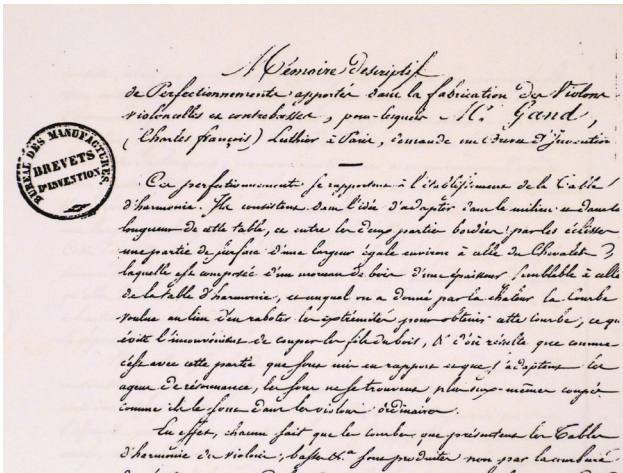 Mémoire descriptif
de Perfectionnements apportés dans la fabrication des Violons
violoncelles et contrebasses, pour lesquels Mr. Gand,
(Charles françois) Luthier à Paris, demande un Brevet d'Invention
BUREAU DES MANUFACTURES.
BREVETS
D'INVENTION
Ces perfectionnements se rapportent à l'établissement de la Table
d'harmonie. Ils consistent dans l'idée d'adapter dans le milieu et dans la
longueur de cette table, et entre les deux parties bordées par les éclisses
une partie de surface d'une largeur égale environ à celle du Chevalet,
laquelle est composée d'un morceau de bois d'une épaisseur semblable à celle
de la table d'harmonie, et auquel on a donné par la chaleur la Courbe
voulue au lieu d'en raboter les extrémités pour obtenir cette courbe, ce qui
évite l'inconvénient de couper les fils du bois, & d'où résulte que comme
c'est avec cette partie que sont mis en rapport et que s'adaptent les
agens de résonnance, les sons ne se trouvent plus eux-mêmes coupés
comme ils le sont dans les violons ordinaires.
En effet, chacun sait que les courbes que présentent les Tables
d'harmonie de violons, basses &.a sont produites non par la cambrure